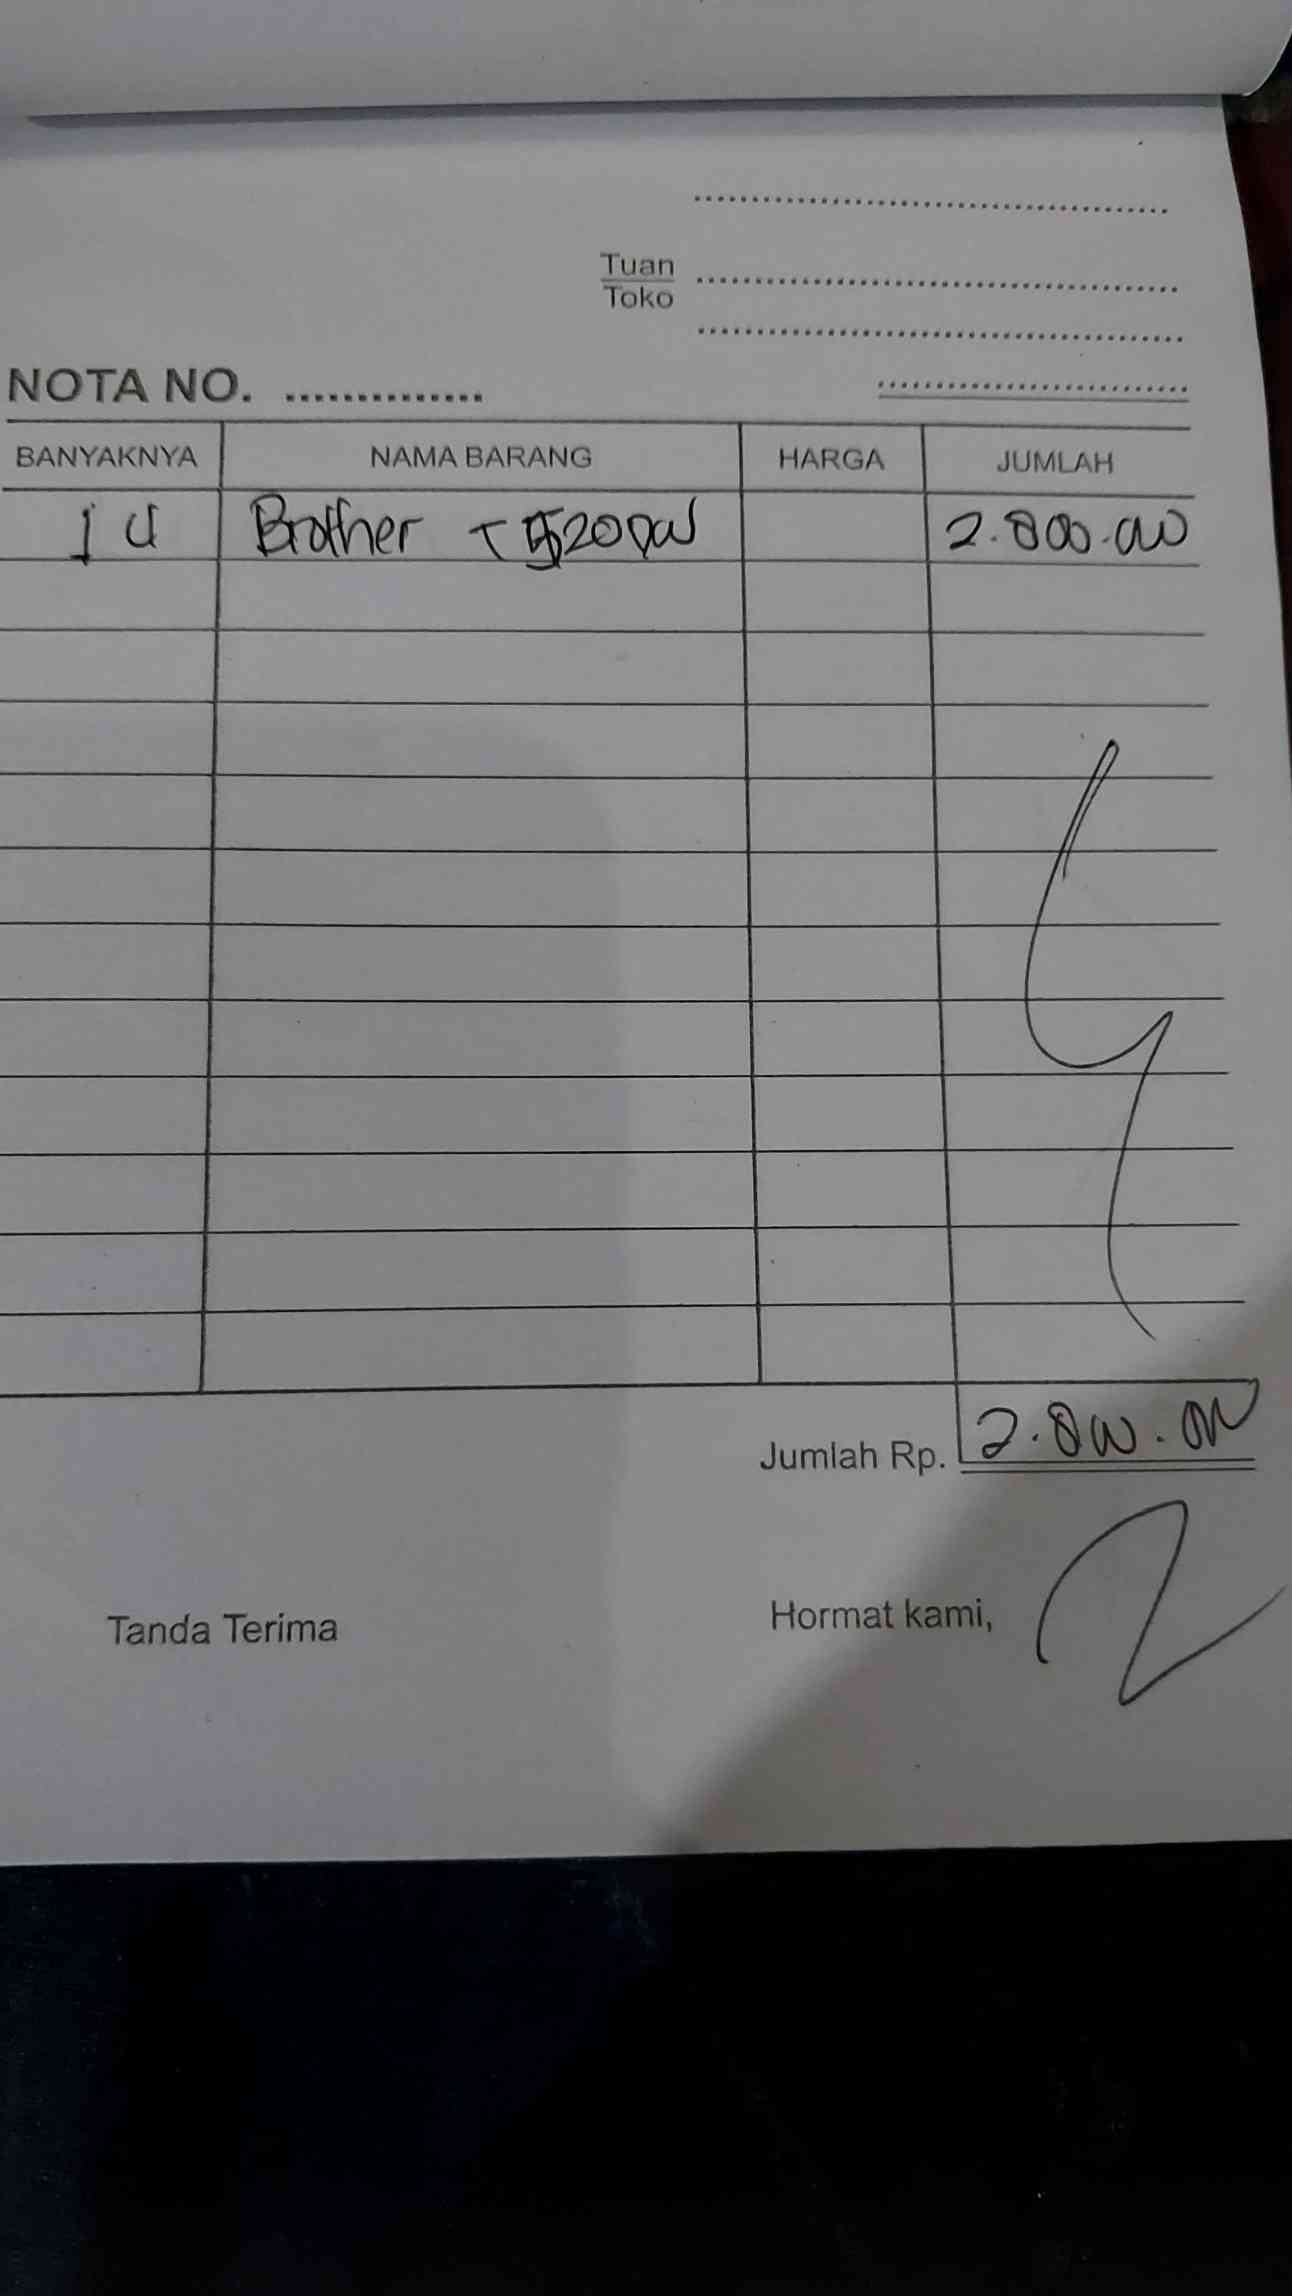 Tuan
Toko
NOTA NO. ..............
BANYAKNYA NAMA BARANG HARGA JUMLAH
1 U Brother T 520DW 2.800.000
Jumlah Rp. 2.800.000
Tanda Terima Hormat kami,